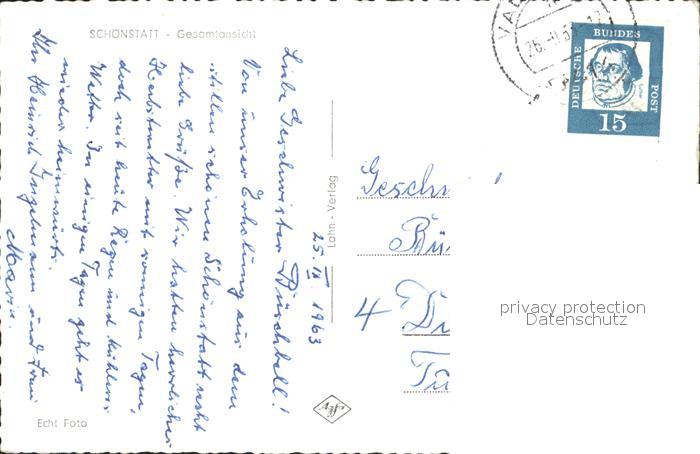 SCHÖNSTATT - Gesamtansicht
25. IX. 1963
Liebe Geschwister Büschkell!
Von unser Erholung aus dem
stillen schönen Schönstatt recht
liebe Grüße. Wir hatten herrliches
Herbstwetter mit sonnigen Tagen,
doch seit heute Regen und kühleres
Wetter. In einigen Tagen geht es
wieder heimwärts.
Ihr Heinrich und Frau
Maria.
Echt Foto
Lahn - Verlag
Geschw
Bü
4 Dü
DEUTSCHE BUNDESPOST
15
privacy protection
Datenschutz